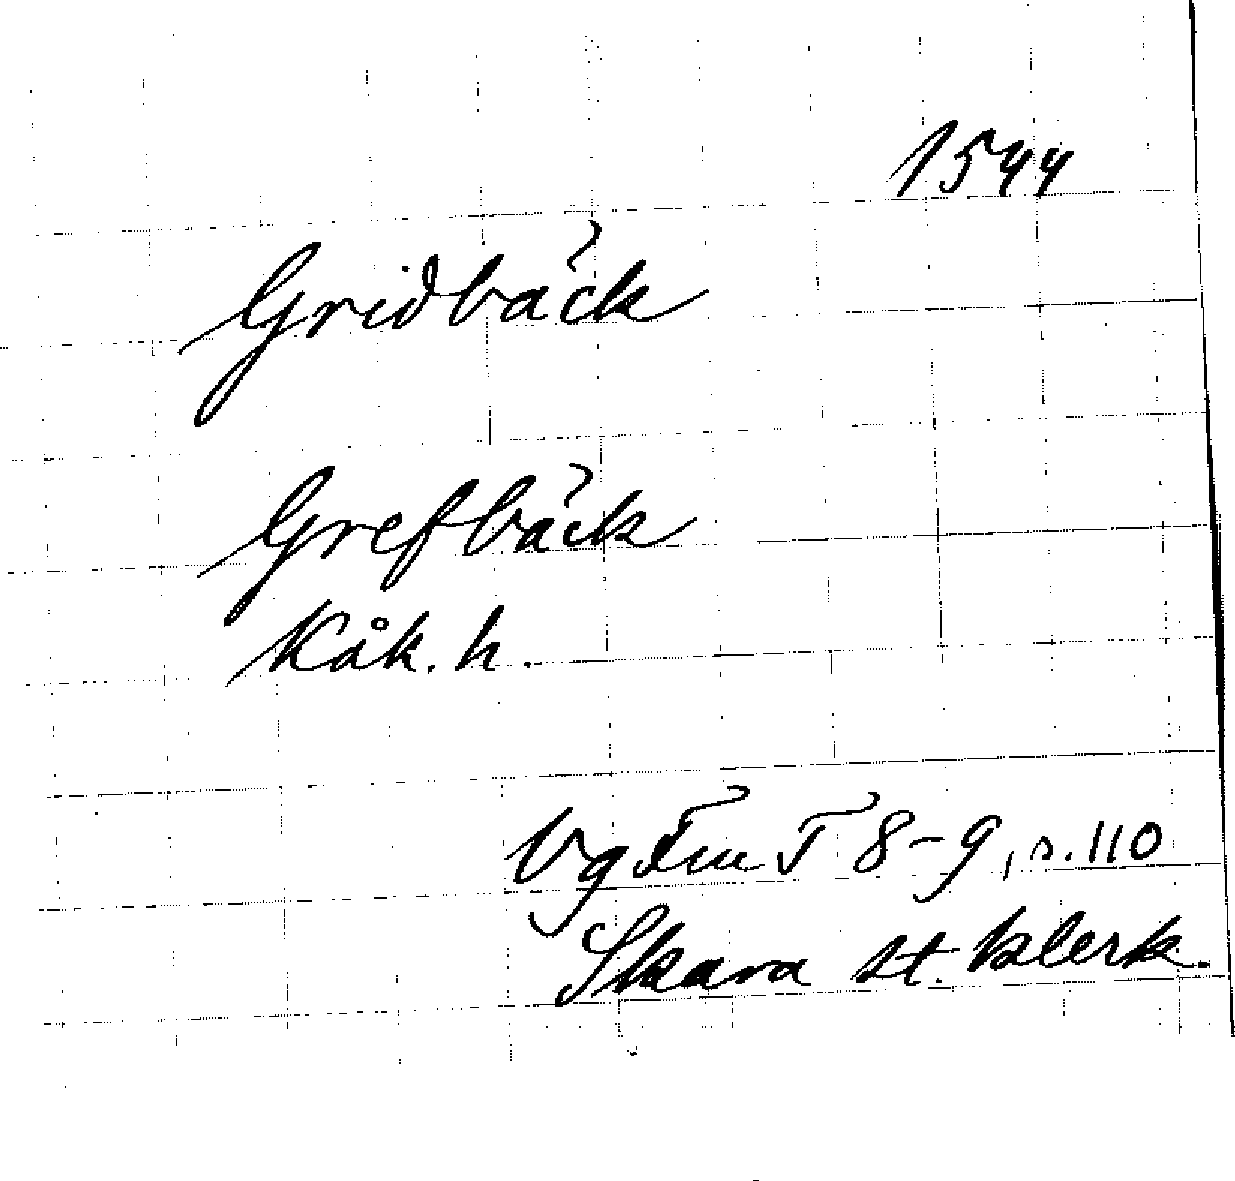 1544
Gridbäck
Grefbäck
Kåk. h.
Vg Fm T 8-9, s. 110
Skara st. klerk.